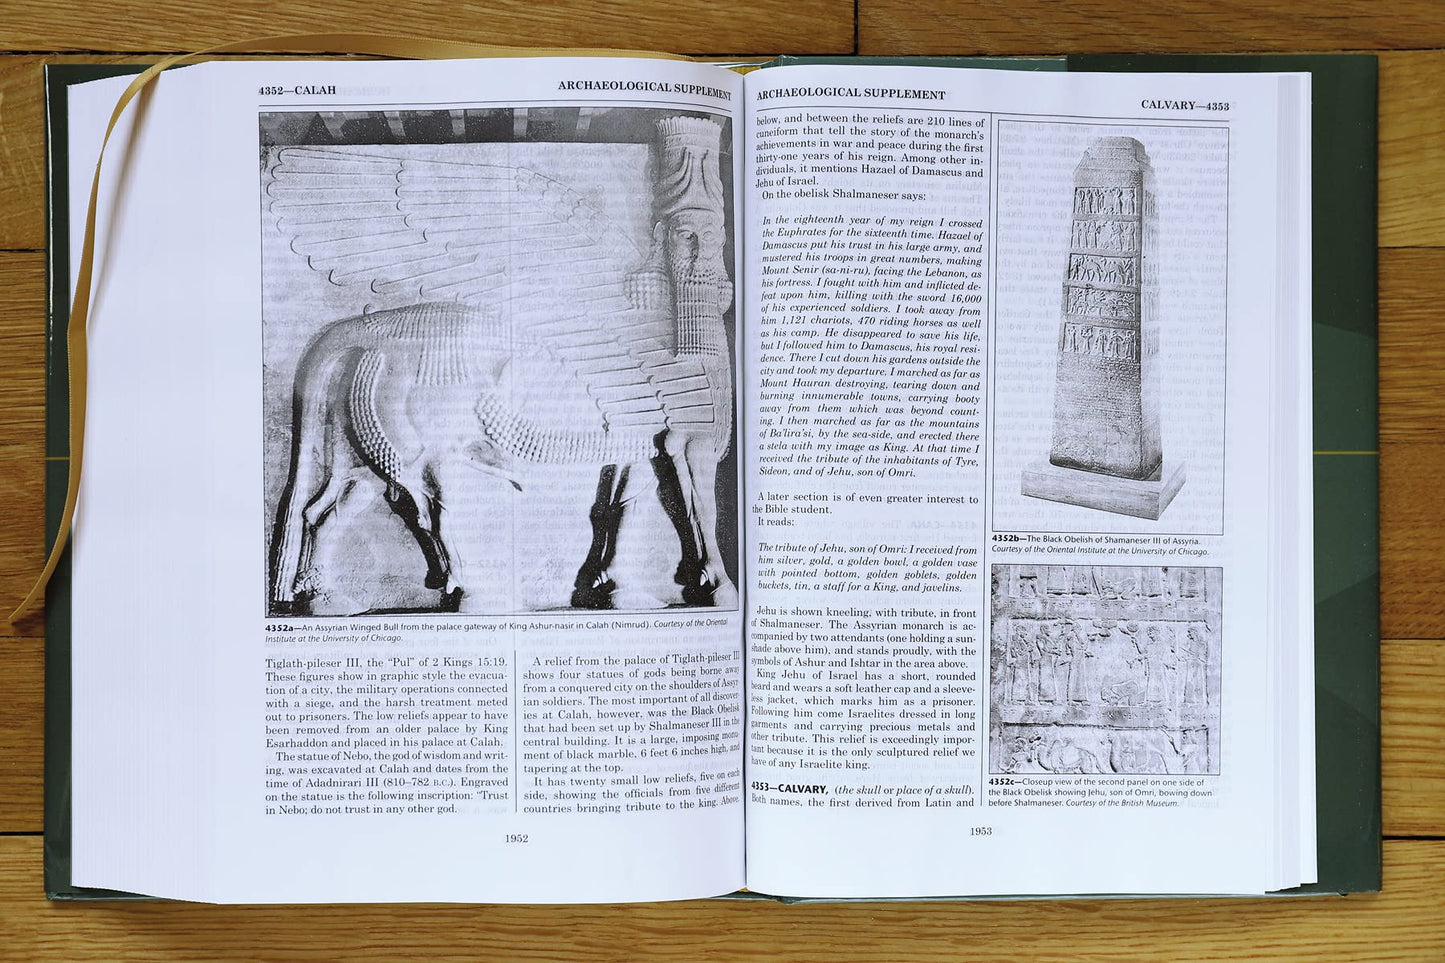 4352—CALAH
ARCHAEOLOGICAL SUPPLEMENT
4352a—An Assyrian Winged Bull from the palace gateway of King Ashur-nasir in Calah (Nimrud). Courtesy of the Oriental
Institute at the University of Chicago.
Tiglath-pileser III, the “Pul” of 2 Kings 15:19.
These figures show in graphic style the evacua-
tion of a city, the military operations connected
with a siege, and the harsh treatment meted
out to prisoners. The low reliefs appear to have
been removed from an older palace by King
Esarhaddon and placed in his palace at Calah.
The statue of Nebo, the god of wisdom and writ-
ing, was excavated at Calah and dates from the
time of Adadnirari III (810–782 B.C.). Engraved
on the statue is the following inscription: “Trust
in Nebo; do not trust in any other god.
A relief from the palace of Tiglath-pileser III
shows four statues of gods being borne away
from a conquered city on the shoulders of Assyr-
ian soldiers. The most important of all discover-
ies at Calah, however, was the Black Obelisk
that had been set up by Shalmaneser III in the
central building. It is a large, imposing monu-
ment of black marble, 6 feet 6 inches high, and
tapering at the top.
It has twenty small low reliefs, five on each
side, showing the officials from five different
countries bringing tribute to the king. Above,
1952
ARCHAEOLOGICAL SUPPLEMENT
CALVARY—4353
below, and between the reliefs are 210 lines of
cuneiform that tell the story of the monarch’s
achievements in war and peace during the first
thirty-one years of his reign. Among other in-
dividuals, it mentions Hazael of Damascus and
Jehu of Israel.
On the obelisk Shalmaneser says:
In the eighteenth year of my reign I crossed
the Euphrates for the sixteenth time. Hazael of
Damascus put his trust in his large army, and
mustered his troops in great numbers, making
Mount Senir (sa-ni-ru), facing the Lebanon, as
his fortress. I fought with him and inflicted de-
feat upon him, killing with the sword 16,000
of his experienced soldiers. I took away from
him 1,121 chariots, 470 riding horses as well
as his camp. He disappeared to save his life,
but I followed him to Damascus, his royal resi-
dence. There I cut down his gardens outside the
city and took my departure. I marched as far as
Mount Hauran destroying, tearing down and
burning innumerable towns, carrying booty
away from them which was beyond count-
ing. I then marched as far as the mountains
of Ba’lira’si, by the sea-side, and erected there
a stela with my image as King. At that time I
received the tribute of the inhabitants of Tyre,
Sideon, and of Jehu, son of Omri.
A later section is of even greater interest to
the Bible student.
It reads:
The tribute of Jehu, son of Omri: I received from
him silver, gold, a golden bowl, a golden vase
with pointed bottom, golden goblets, golden
buckets, tin, a staff for a King, and javelins.
Jehu is shown kneeling, with tribute, in front
of Shalmaneser. The Assyrian monarch is ac-
companied by two attendants (one holding a sun-
shade above him), and stands proudly, with the
symbols of Ashur and Ishtar in the area above.
King Jehu of Israel has a short, rounded
beard and wears a soft leather cap and a sleeve-
less jacket, which marks him as a prisoner.
Following him come Israelites dressed in long
garments and carrying precious metals and
other tribute. This relief is exceedingly impor-
tant because it is the only sculptured relief we
have of any Israelite king.
4353—CALVARY, (the skull or place of a skull).
Both names, the first derived from Latin and
4352b—The Black Obelish of Shamaneser III of Assyria.
Courtesy of the Oriental Institute at the University of Chicago.
4352c—Closeup view of the second panel on one side of
the Black Obelisk showing Jehu, son of Omri, bowing down
before Shalmaneser. Courtesy of the British Museum.
1953